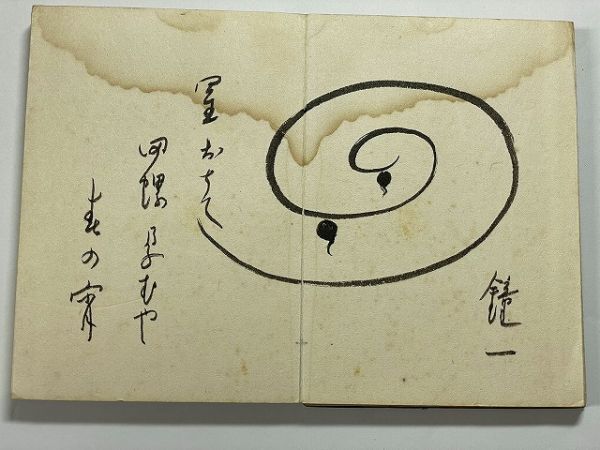 鐘一
星おちて
田螺孕むや
春の宵